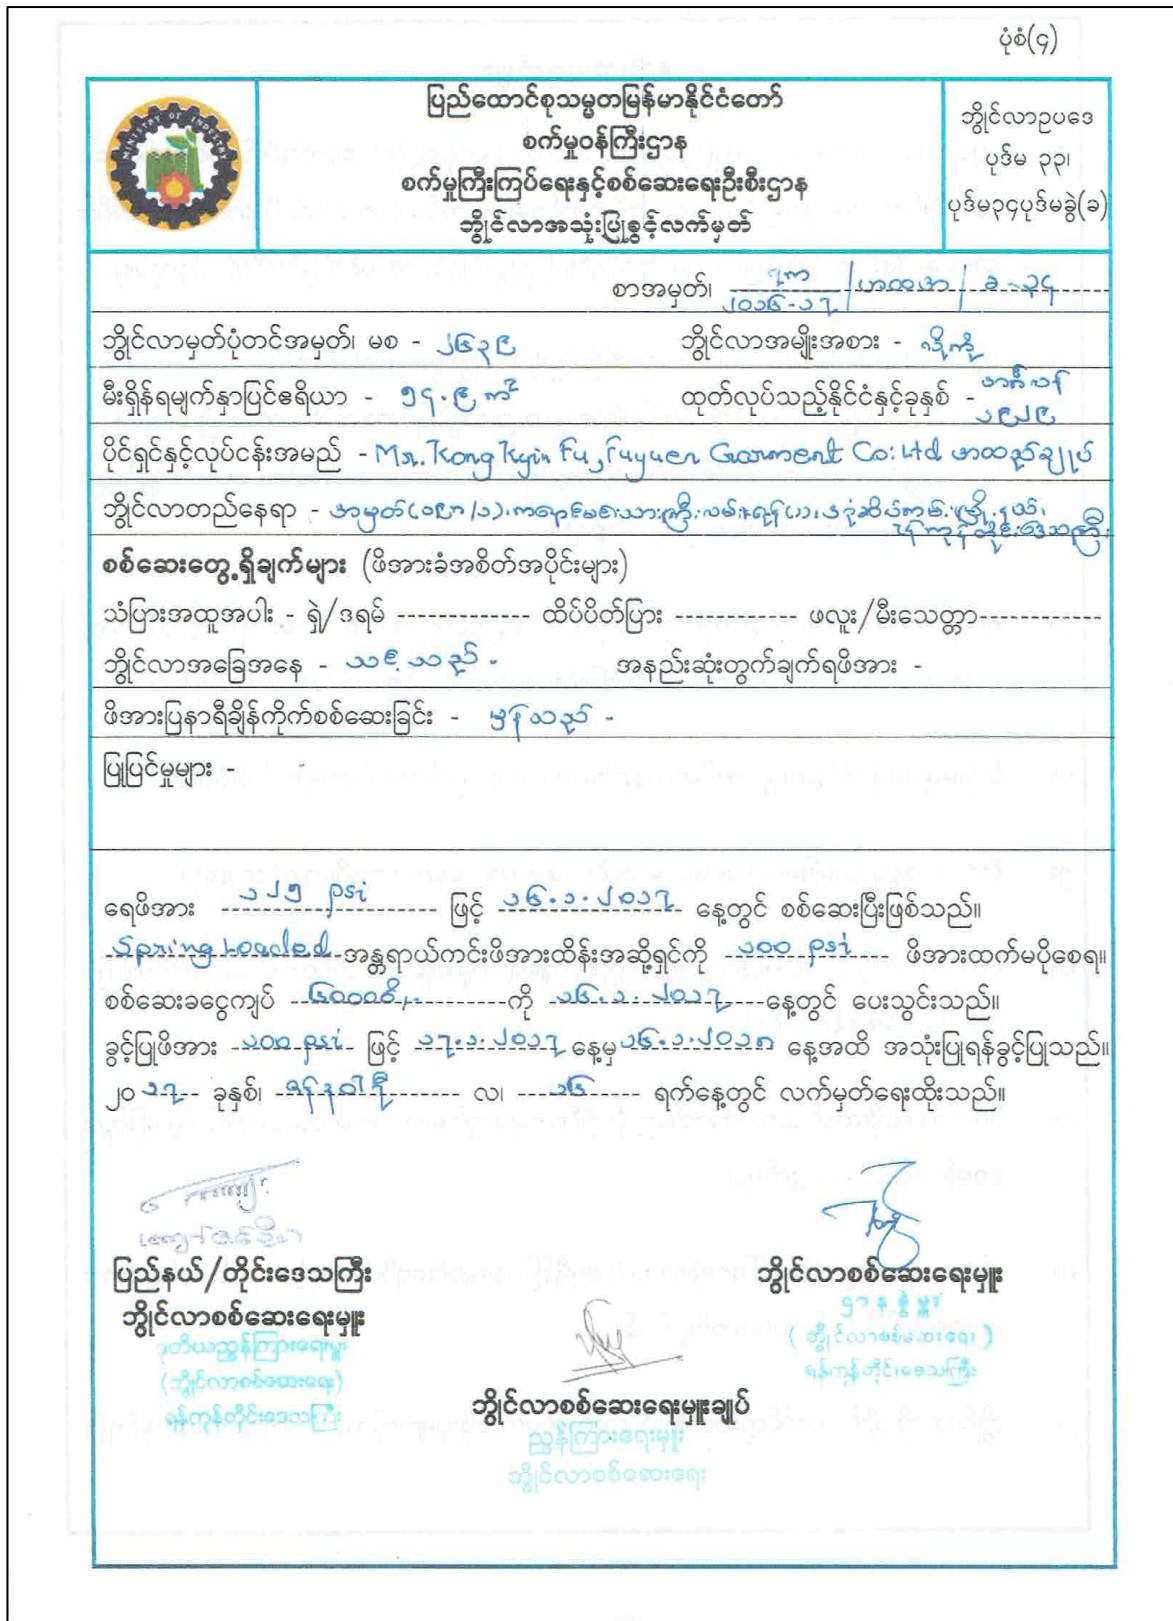 ပုံစံ(၄)
MINISTRY OF INDUSTRY
ပြည်ထောင်စုသမ္မတမြန်မာနိုင်ငံတော်
စက်မှုဝန်ကြီးဌာန
စက်မှုကြီးကြပ်ရေးနှင့်စစ်ဆေးရေးဦးစီးဌာန
ဘွိုင်လာအသုံးပြုခွင့်လက်မှတ်
ဘွိုင်လာဥပဒေ
ပုဒ်မ ၃၃၊
ပုဒ်မ၃၄ပုဒ်မခွဲ(ခ)
စာအမှတ်၊ ၂၀၁၆-၁၇
ဘွိုင်လာမှတ်ပုံတင်အမှတ်၊ မစ - ၂၆၃၉ ဘွိုင်လာအမျိုးအစား -
မီးရှိန်ရမျက်နှာပြင်ဧရိယာ - ၅၄.၉ m² ထုတ်လုပ်သည့်နိုင်ငံနှင့်ခုနှစ် -
ပိုင်ရှင်နှင့်လုပ်ငန်းအမည် - Mr. Kong Kyin Fu, Fuyuen Garment Co: Ltd အထည်ချုပ်
ဘွိုင်လာတည်နေရာ - ရန်ကုန်တိုင်းဒေသကြီး
စစ်ဆေးတွေ့ရှိချက်များ (ဖိအားခံအစိတ်အပိုင်းများ)
သံပြားအထူအပါး - ရှဲ/ဒရမ် ------------- ထိပ်ပိတ်ပြား ------------ ဖလူး/မီးသေတ္တာ------------
ဘွိုင်လာအခြေအနေ - သင့်သည်- အနည်းဆုံးတွက်ချက်ရဖိအား -
ဖိအားပြနာရီချိန်ကိုက်စစ်ဆေးခြင်း - မှန်သည် -
ပြုပြင်မှုများ - -
ရေဖိအား ၁၂၅ psi ဖြင့် ၁၆.၁.၂၀၁၇ နေ့တွင် စစ်ဆေးပြီးဖြစ်သည်။
Spring Loaded အန္တရာယ်ကင်းဖိအားထိန်းအဆို့ရှင်ကို ၁၀၀ psi ဖိအားထက်မပိုစေရ။
စစ်ဆေးခငွေကျပ် ၆၀၀၀၀ိ/- ကို ၁၆.၁.၂၀၁၇ နေ့တွင် ပေးသွင်းသည်။
ခွင့်ပြုဖိအား ၁၀၀ psi ဖြင့် ၁၇.၁.၂၀၁၇ နေ့မှ ၁၆.၁.၂၀၁၈ နေ့အထိ အသုံးပြုရန်ခွင့်ပြုသည်။
၂၀၁၇ ခုနှစ်၊ ဇန်နဝါရီ လ၊ ၁၆ ရက်နေ့တွင် လက်မှတ်ရေးထိုးသည်။
ပြည်နယ်/တိုင်းဒေသကြီး
ဘွိုင်လာစစ်ဆေးရေးမှူး
ဒုတိယညွှန်ကြားရေးမှူး
(ဘွိုင်လာစစ်ဆေးရေး)
ရန်ကုန်တိုင်းဒေသကြီး
ဘွိုင်လာစစ်ဆေးရေးမှူး
ဌာနခွဲမှူး
(ဘွိုင်လာစစ်ဆေးရေး)
ရန်ကုန်တိုင်းဒေသကြီး
ဘွိုင်လာစစ်ဆေးရေးမှူးချုပ်
ညွှန်ကြားရေးမှူး
ဘွိုင်လာစစ်ဆေးရေး